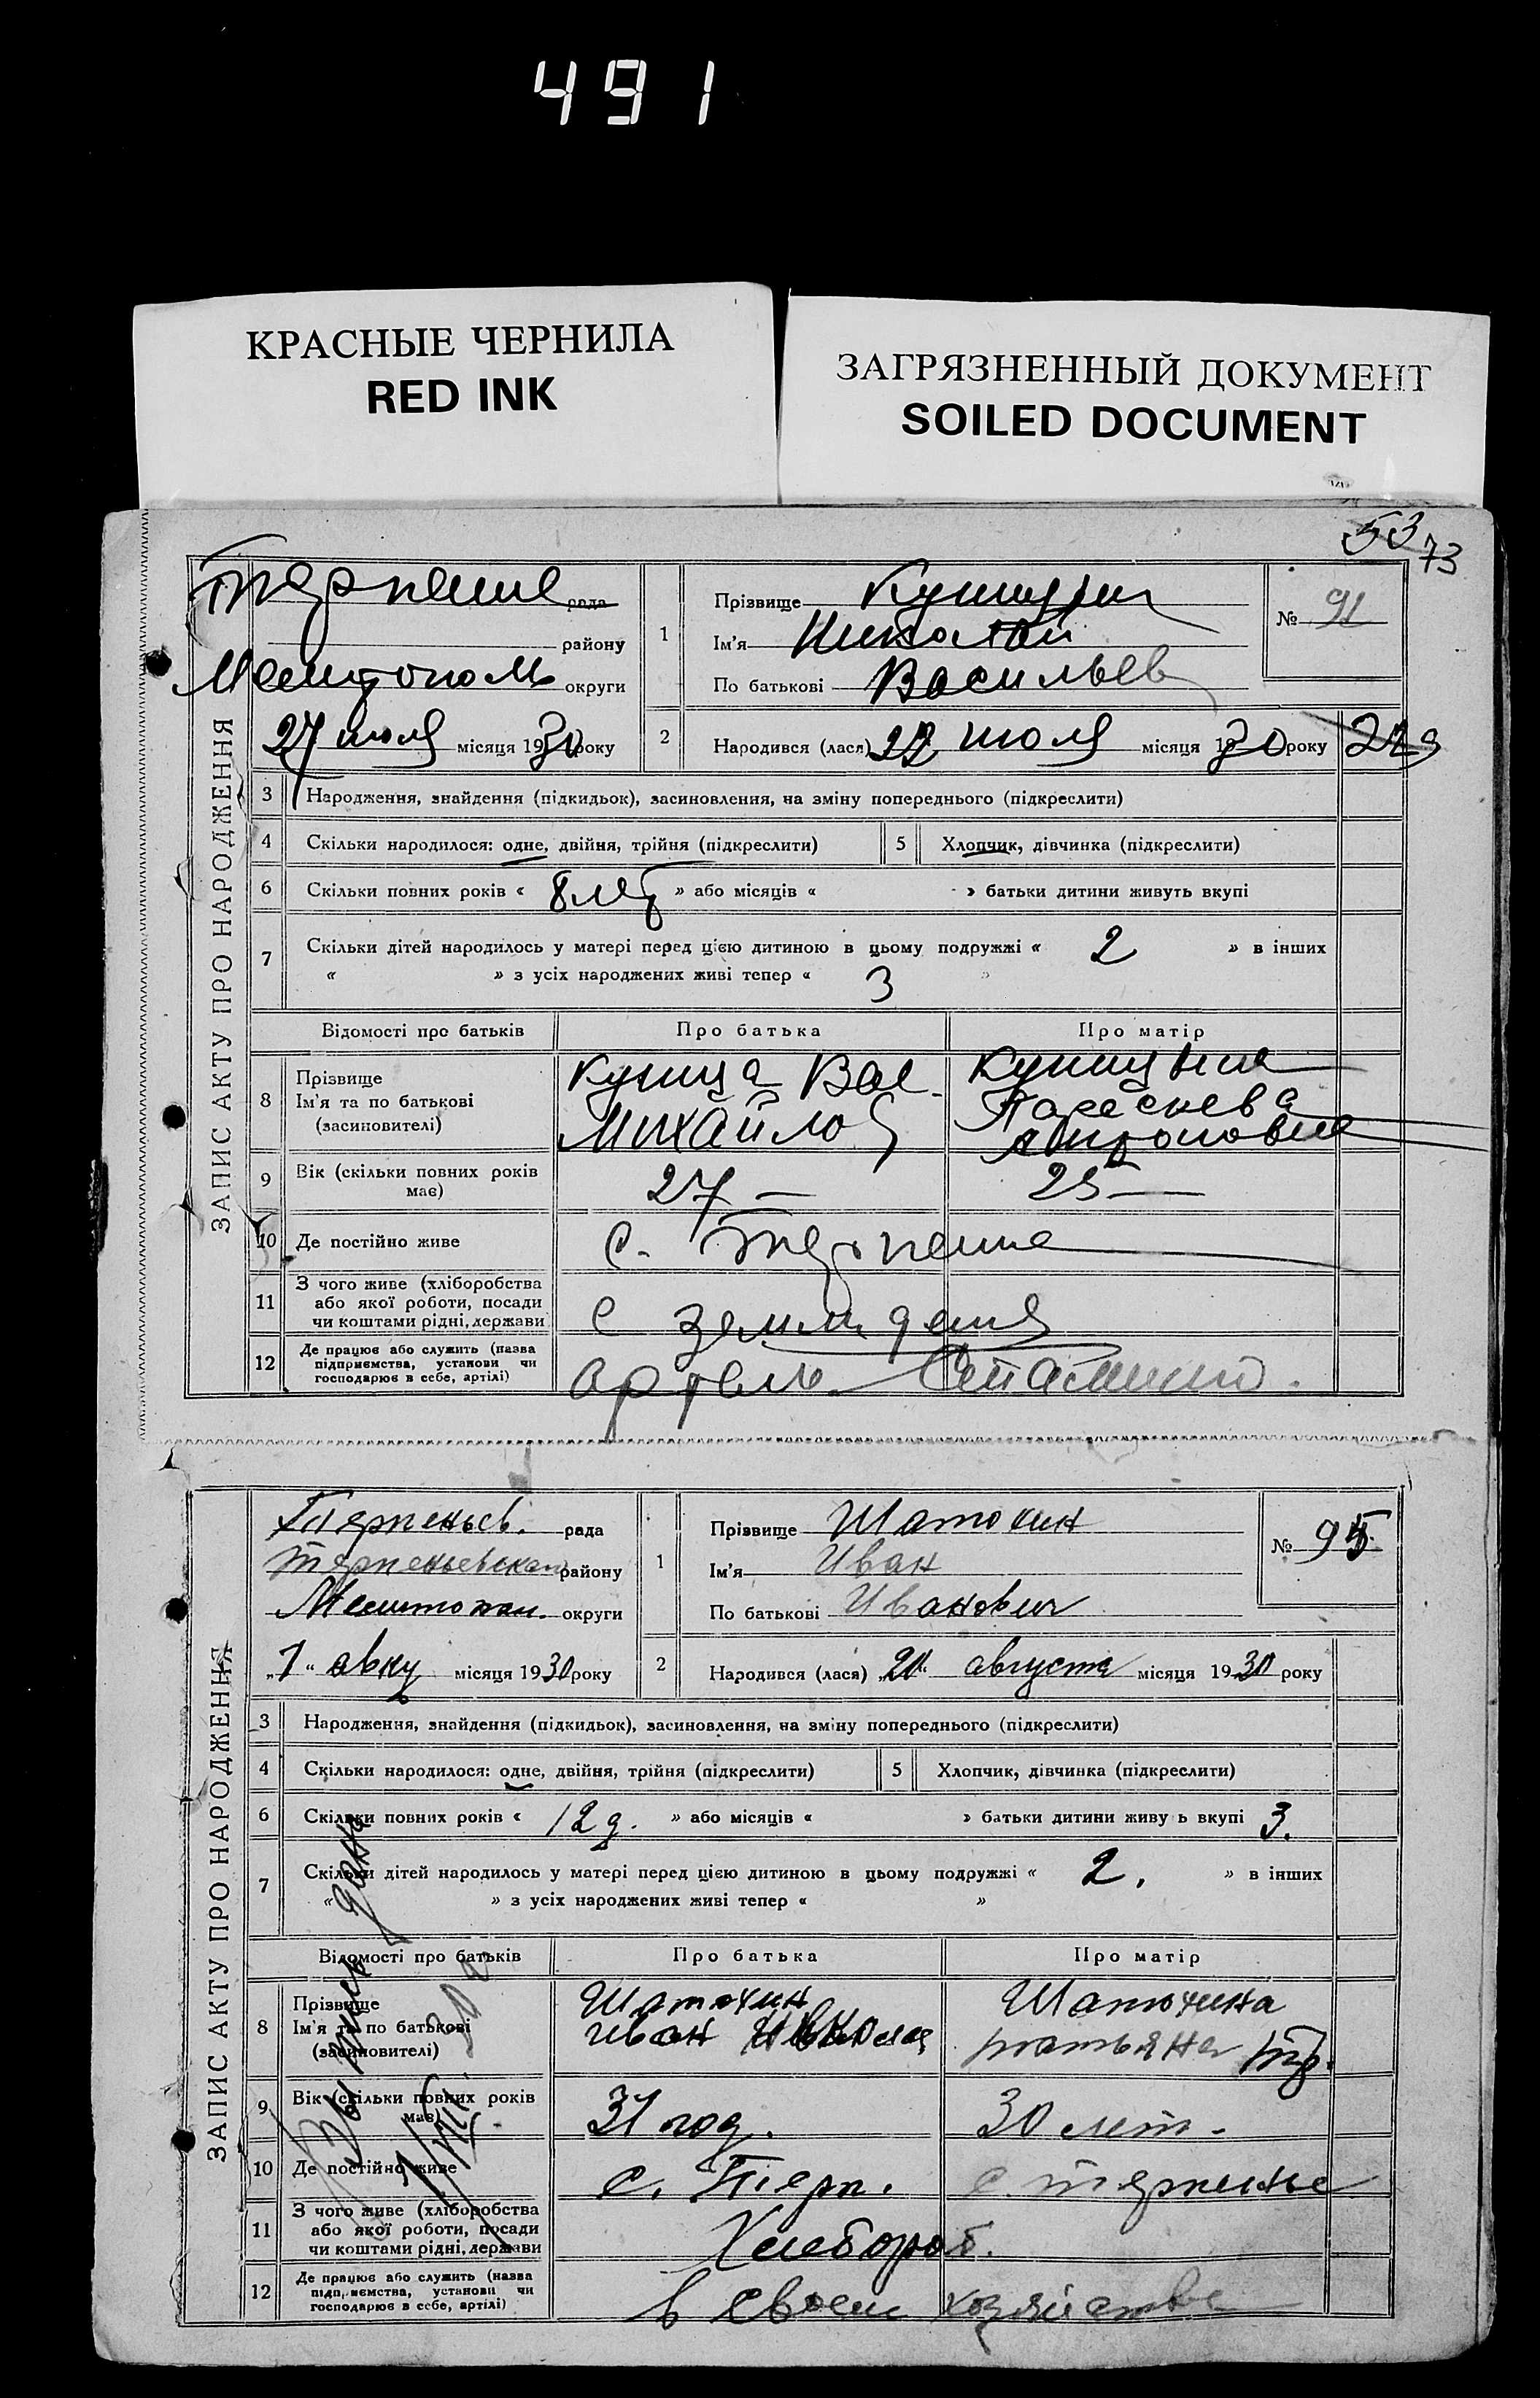 491
КРАСНЫЕ ЧЕРНИЛА
RED INK
ЗАГРЯЗНЕННЫЙ ДОКУМЕНТ
SOILED DOCUMENT
53 73
ЗАПИС АКТУ ПРО НАРОДЖЕННЯ
Терпение рада
району
округи
27 июля місяця 1930 року
1
Прізвище
Ім'я Николай
По батькові Васильев
№ 91
2
Народився (лася) июля місяця 1930 року
3 Народження, знайдення (підкидьок), засиновлення, на зміну попереднього (підкреслити)
4 Скільки народилося: одне, двійня, трійня (підкреслити)
5 Хлопчик, дівчинка (підкреслити)
6 Скільки повних років « 8 лет » або місяців « » батьки дитини живуть вкупі
7 Скільки дітей народилось у матері перед цією дитиною в цьому подружжі « 2 » в інших
« » з усіх народжених живі тепер « 3 »
Відомості про батьків Про батька Про матір
8 Прізвище
Ім'я та по батькові
(засиновителі)
Куница Вас.
Михайлов
Параскева
9 Вік (скільки повних років
має)
27 — 25 —
10 Де постійно живе с. Терпение
11 З чого живе (хліборобства
або якої роботи, посади
чи коштами рідні, держави
с земледелия
12 Де працює або служить (назва
підприємства, установи чи
господарює в себе, артілі)
артель
ЗАПИС АКТУ ПРО НАРОДЖЕННЯ
Терпеньев. рада
Терпеньевская району
Мелитопол. округи
"1" авгу місяця 1930 року
1
Прізвище Шатохин
Ім'я Иван
По батькові Иванович
№ 95
2
Народився (лася) августа місяця 1930 року
3 Народження, знайдення (підкидьок), засиновлення, на зміну попереднього (підкреслити)
4 Скільки народилося: одне, двійня, трійня (підкреслити)
5 Хлопчик, дівчинка (підкреслити)
6 Скільки повних років « 12 г. » або місяців « » батьки дитини живу ь вкупі 3.
7 Скільки дітей народилось у матері перед цією дитиною в цьому подружжі « 2. » в інших
« » з усіх народжених живі тепер « »
Відомості про батьків Про батька Про матір
8 Прізвище
Ім'я та по батькові
(засиновителі)
Шатохин
Иван
Шатохина
Татьяна
9 Вік (скільки повних років
має)
31 год. 30 лет.
10 Де постійно живе с. Терп. с. Терпенье
11 З чого живе (хліборобства
або якої роботи, посади
чи коштами рідні, держави
Хлебороб.
12 Де працює або служить (назва
підприємства, установи чи
господарює в себе, артілі)
в своем хозяйстве